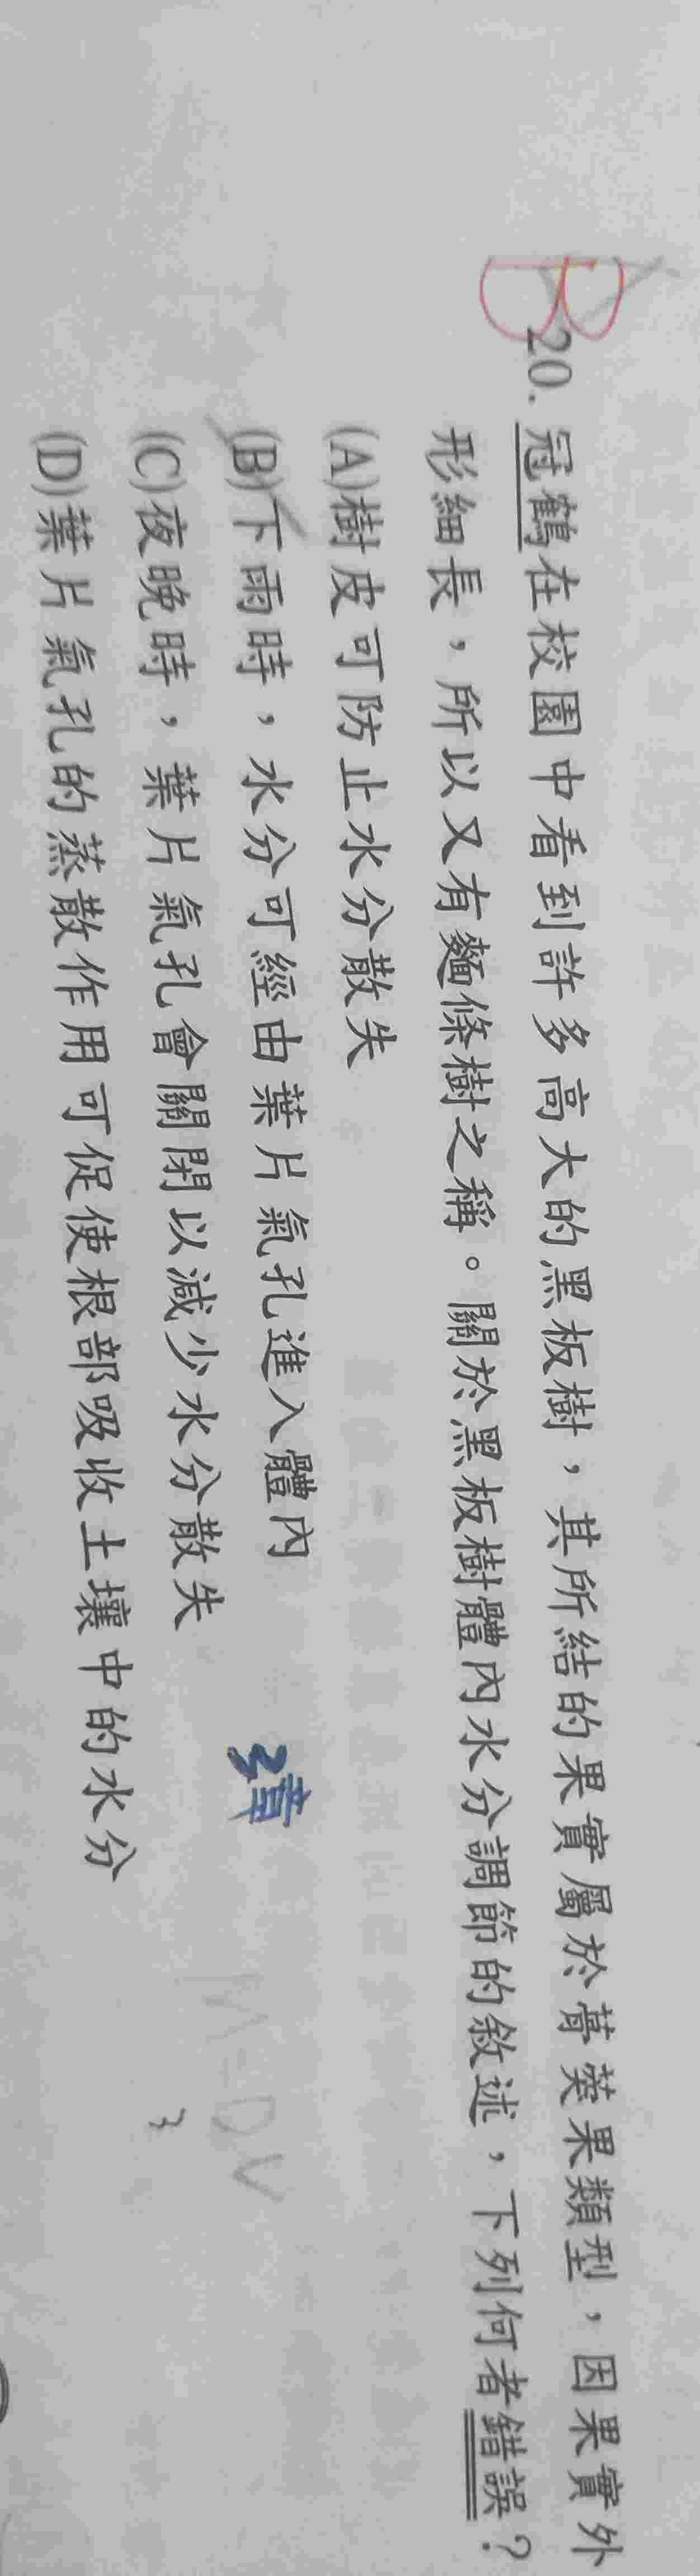 B
20. 冠鶴在校園中看到許多高大的黑板樹，其所結的果實屬於蓇葖果類型，因果實外
形細長，所以又有麵條樹之稱。關於黑板樹體內水分調節的敘述，下列何者錯誤？
(A)樹皮可防止水分散失
(B)下雨時，水分可經由葉片氣孔進入體內
(C)夜晚時，葉片氣孔會關閉以減少水分散失
(D)葉片氣孔的蒸散作用可促使根部吸收土壤中的水分